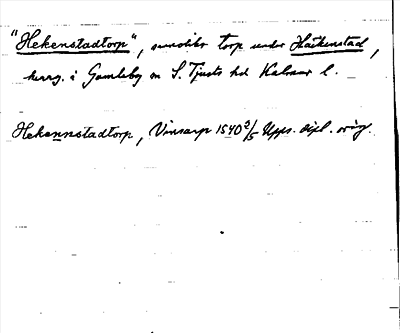 "Hekenstadtorp", sannolikt torp under Häckenstad,
herrg. i Gamleby sn S. Tjusts hd Kalmar l.
Hekennstadtorp, Vinsarp 1540 3/5 Upps. dipl. orig.